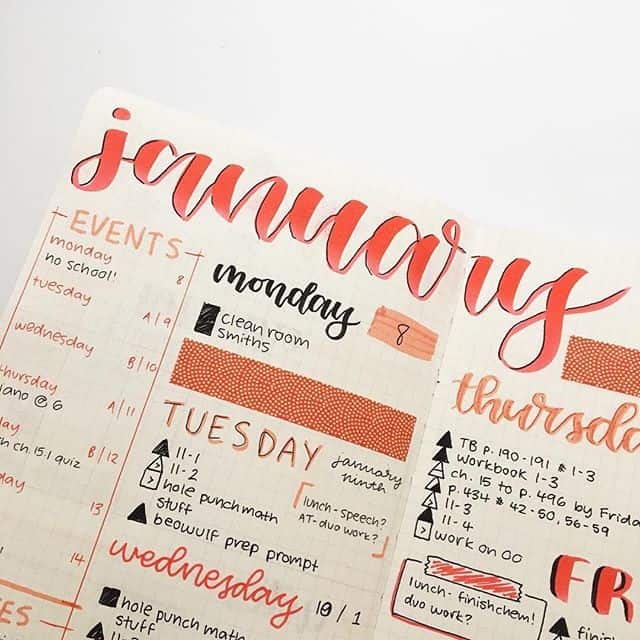 january
EVENTS
monday
no school!
8
tuesday
A/9
wednesday
B/10
thursday
piano @ 6
A/11
ch. 15.1 quiz
B/12
13
14
monday
8
clean room
smiths
TUESDAY
january
ninth
11-1
11-2
hole punch math
stuff
beowulf prep prompt
lunch-speech?
AT-duo work?
wednesday
10/1
hole punch math
stuff
thursda
TB p. 190-191 # 1-3
workbook 1-3
ch. 15 to p. 496 by Friday
p. 434 # 42-50, 56-59
11-3
11-4
work on OO
FR
lunch-finish chem!
duo work?
finish